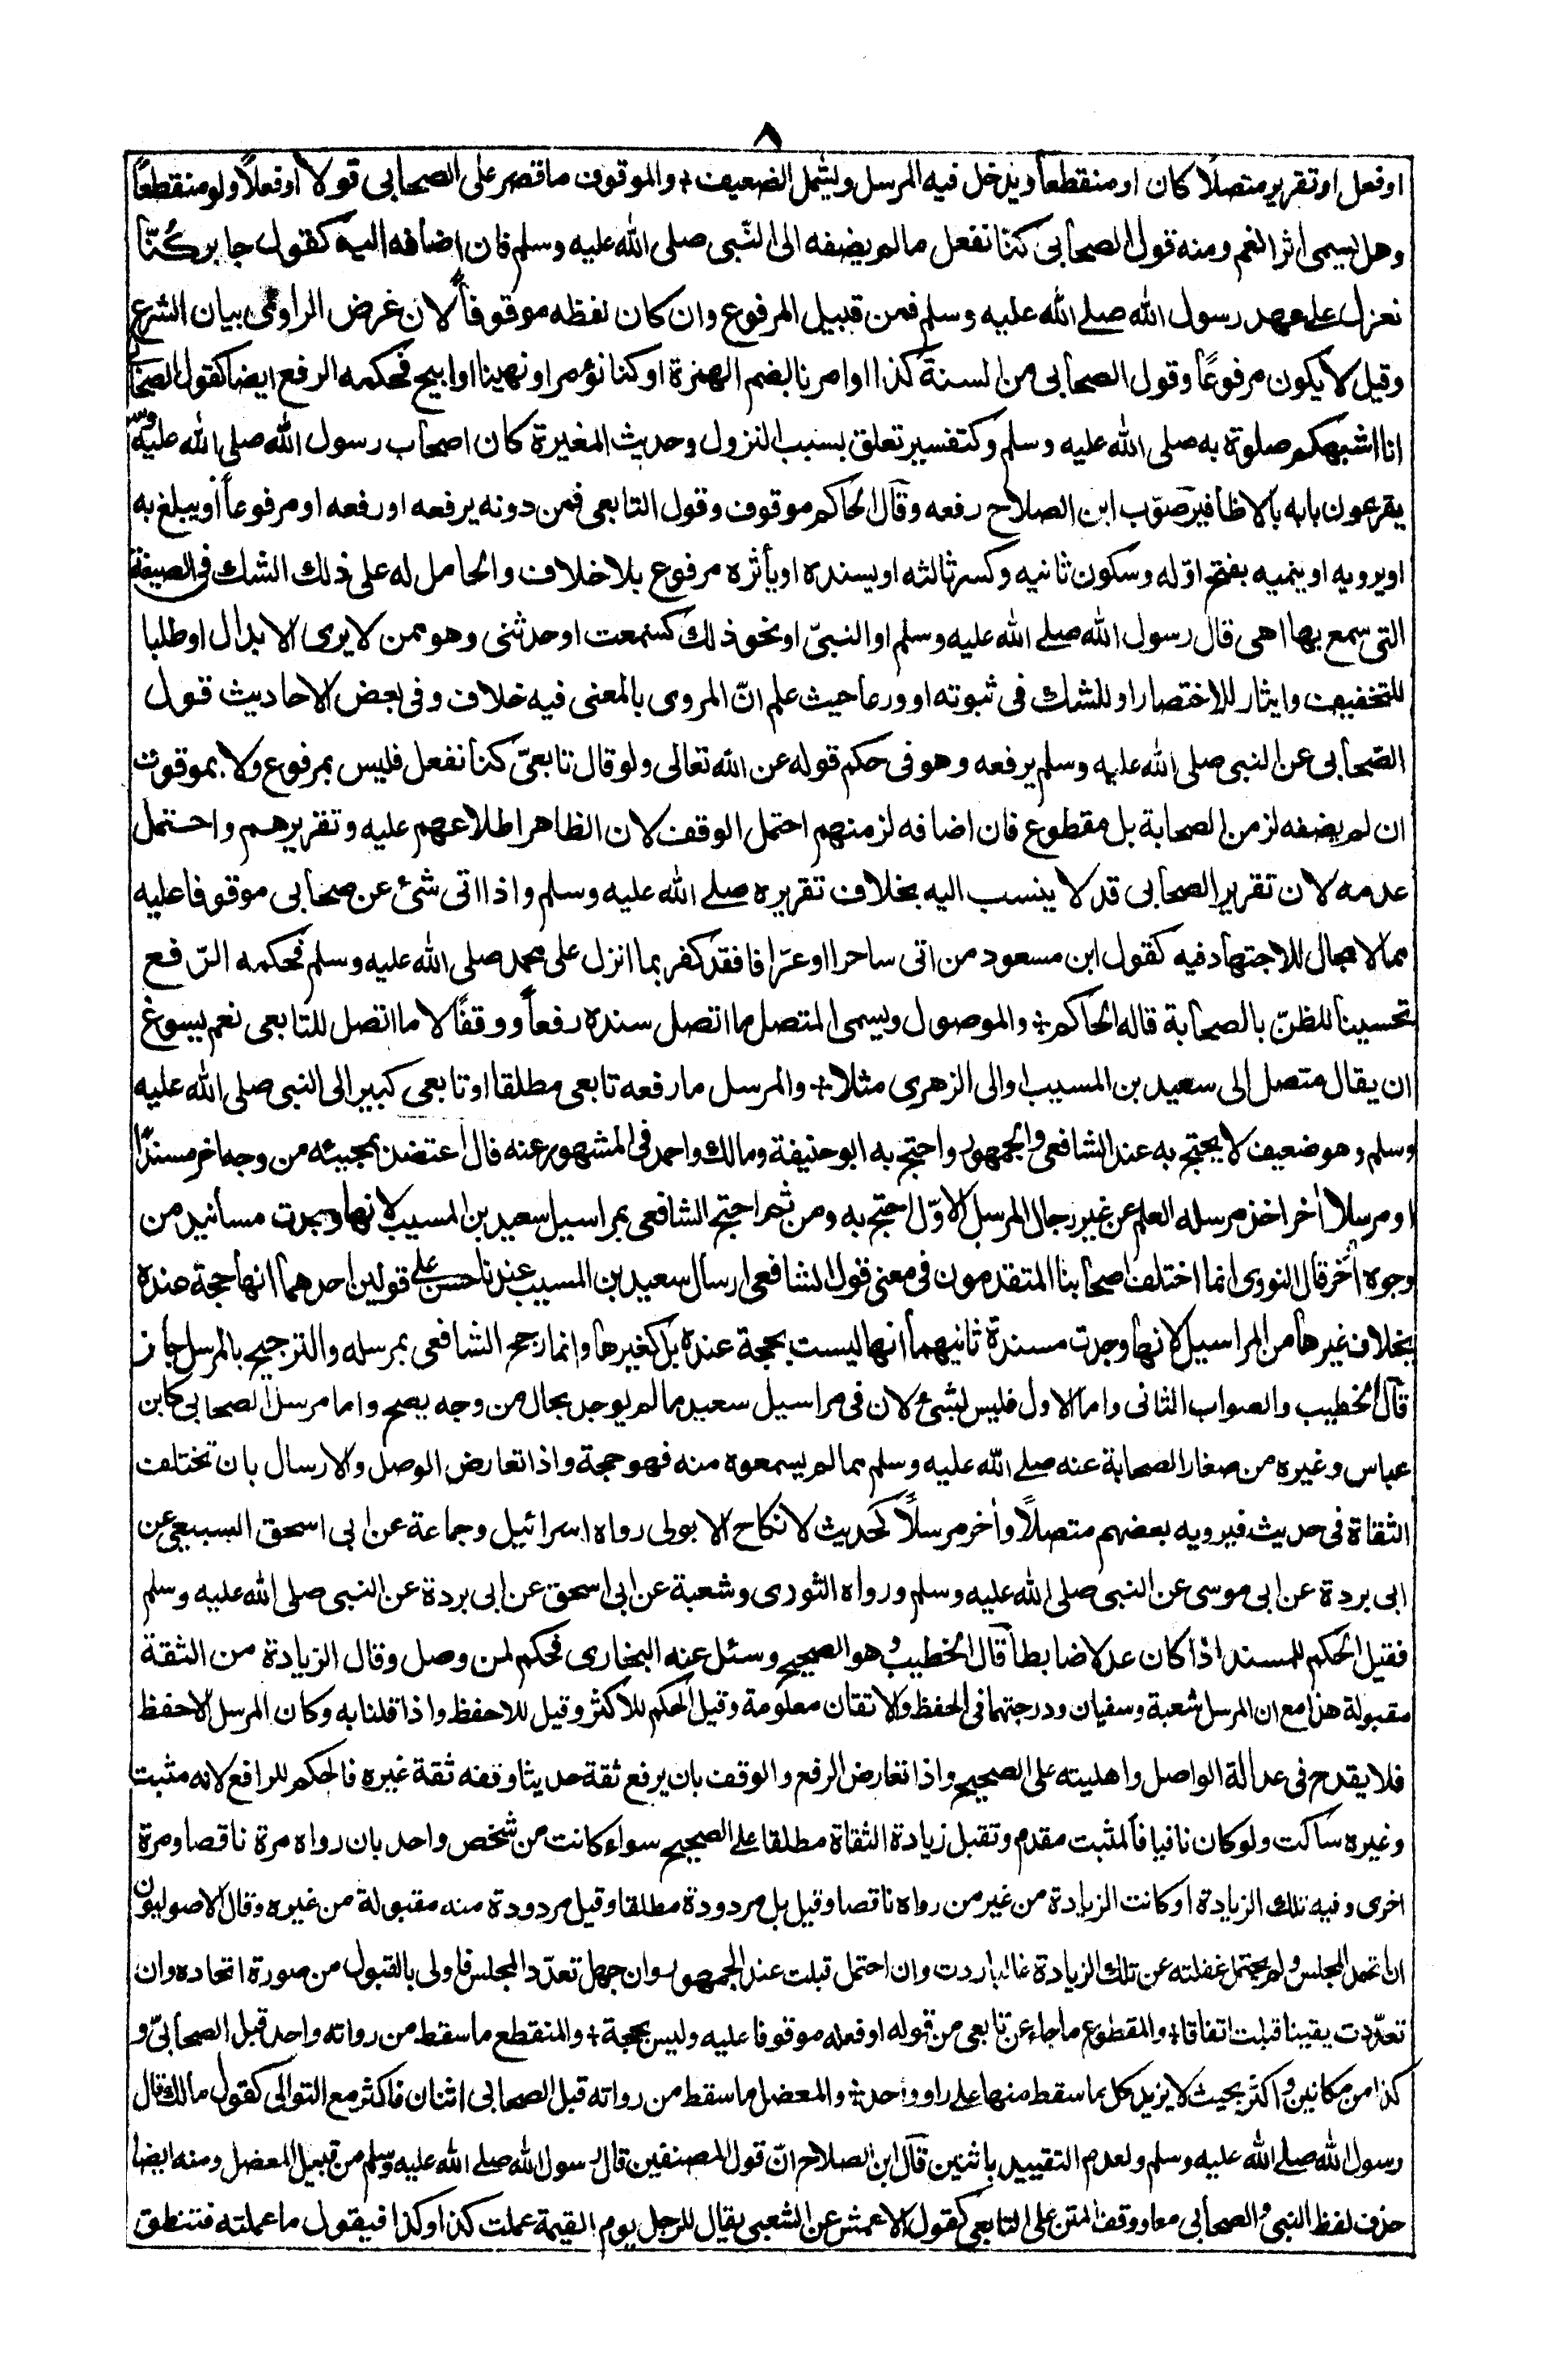 ٨
او فعل او تقرير متصلا كان او منقطعا ويدخل فيه المرسل ويشمل الضعيف ÷ والموقوف ما قصر على الصحابى قولا او فعلاً ولو منقطعاً
وهل يسمى اثرا نعم ومنه قول الصحابى كنّا نفعل ما لم يضفه الى النّبى صلى الله عليه وسلم فان اضافه اليه كقول جابر كُنّا
نعزل على عهد رسول الله صلے الله عليه وسلم فمن قبيل المرفوع وان كان لفظه موقوفاً لان غرض الراوى بيان الشرع
وقيل لا يكون مرفوعاً وقول الصحابى من السنة كذا او امرنا بضم الهمزة او كنا نؤمر او نهينا او ابيح فحكمه الرفع ايضا كقول الصحابى
انا اشبهكم صلوة به صلى الله عليه وسلم وكتفسير تعلق بسبب النزول وحديث المغيرة كان اصحاب رسول الله صلى الله عليه وسلم
يقرعون بابه بالاظافير صوّب ابن الصلاح رفعه وقال الحاكم موقوف وقول التابعى فمن دونه يرفعه او رفعه او مرفوعاً او يبلغ به
او يرويه او ينميه بفتح اوّله وسكون ثانيه وكسر ثالثه او يسنده او يأثره مرفوع بلا خلاف والحامل له على ذلك الشك فى الصيغة
التى سمع بها اهى قال رسول الله صلے الله عليه وسلم او النبىّ او نحو ذلك كسمعت او حدثنى وهو ممن لا يرى الابدال او طلبا
للتخفيف وايثار للاختصار او للشك فى ثبوته او ورعا حيث علم انّ المروى بالمعنى فيه خلاف وفى بعض الاحاديث قول
الصّحابى عن النبى صلى الله عليه وسلم يرفعه وهو فى حكم قوله عن الله تعالى ولو قال تابعىّ كنا نفعل فليس بمرفوع ولا بموقوف
ان لم يضفه لزمن الصحابة بل مقطوع فان اضافه لزمنهم احتمل الوقف لان الظاهر اطلاعهم عليه وتقريرهم واحتمل
عدمه لان تقرير الصحابى قد لا ينسب اليه بخلاف تقريره صلے الله عليه وسلم واذا اتى شئ عن صحابى موقوفا عليه
مما لا مجال للاجتهاد فيه كقول ابن مسعود من اتى ساحرا او عرّافا فقد كفر بما انزل على محمد صلى الله عليه وسلم فحكمه الرّفع
تحسينا للظنّ بالصحابة قاله الحاكم ÷ والموصول ويسمى المتصل ما اتصل سنده رفعاً ووقفاً لا ما اتصل للتابعى نعم يسوغ
ان يقال متصل الى سعيد بن المسيب او الى الزهرى مثلا ÷ والمرسل ما رفعه تابعى مطلقا او تابعى كبير الى النبى صلى الله عليه
وسلم وهو ضعيف لا يحتج به عند الشافعى والجمهور واحتج به ابو حنيفة ومالك واحمد فى المشهور عنه فان اعتضد بمجيئه من وجه اخر مسندًا
او مرسلا اٰخر اخذ مرسله العلم عن غير رجال المرسل الاوّل احتج به ومن ثم احتج الشافعى بمراسيل سعيد بن المسيب لانها وجدت مسانيد من
وجوه اُخَر قال النووى انما اختلف اصحابنا المتقدمون فى معنى قول الشافعى ارسال سعيد بن المسيب عندنا حسن على قولين احدهما انها حجة عنده
بخلاف غيرها من المراسيل لانها وجدت مسندة ثانيهما انها ليست بحجة عنده بل كغيرها وانما رجح الشافعى بمرسله والترجيح بالمرسل جائز
قال الخطيب والصواب الثانى واما الاول فليس بشئ لان فى مراسيل سعيد ما لم يوجد بحال من وجه يصح واما مرسل الصحابى كابن
عباس وغيره من صغار الصحابة عنه صلے الله عليه وسلم مما لم يسمعوه منه فهو حجة واذا تعارض الوصل والارسال بان تختلف
الثقاة فى حديث فيرويه بعضهم متصلاً واٰخر مرسلاً كحديث لا نكاح الا بولى رواه اسرائيل وجماعة عن ابى اسحق السبيعى عن
ابى بردة عن ابى موسى عن النبى صلى الله عليه وسلم ورواه الثورى وشعبة عن ابى اسحق عن ابى بردة عن النبى صلى الله عليه وسلم
فقيل الحكم للمسند اذا كان عدلا ضابطا قال الخطيب وهو الصحيح وسئل عنه البخارى فحكم لمن وصل وقال الزيادة من الثقة
مقبولة هذا مع ان المرسل شعبة وسفيان ودرجتهما فى الحفظ والاتقان معلومة وقيل الحكم للاكثر وقيل للاحفظ واذا قلنا به وكان المرسل الاحفظ
فلا يقدح فى عدالة الواصل واهليته على الصحيح واذا تعارض الرفع والوقف بان يرفع ثقة حديثا وقفه ثقة غيره فالحكم للرافع لانه مثبت
وغيره ساكت ولو كان نافيا فالمثبت مقدم وتقبل زيادة الثقاة مطلقا على الصحيح سواء كانت من شخص واحد بان رواه مرة ناقصا ومرة
اخرى وفيه تلك الزيادة او كانت الزيادة من غير من رواه ناقصا وقيل بل مردودة مطلقا وقيل مردودة منه مقبولة من غيره وقال الاصوليون
ان اتحد المجلس ولم يحتمل غفلته عن تلك الزيادة غالبا ردت وان احتمل قبلت عند الجمهور وان جهل تعدّد المجلس فاولى بالقبول من صورة اتحاده وان
تعدّدت يقينا قبلت اتفاقا ÷ والمقطوع ما جاء عن تابعى من قوله او فعله موقوفا عليه وليس بحجة ÷ والمنقطع ما سقط من رواته واحد قبل الصحابىّ و
كذا من مكانين واكثر بحيث لا يزيد كل ما سقط منها على راو واحد ÷ والمعضل ما سقط من رواته قبل الصحابى اثنان فاكثر مع التوالى كقول مالك قال
رسول الله صلے الله عليه وسلم ولعدم التقييد باثنين قال ابن الصلاح انّ قول المصنفين قال رسول الله صلے الله عليه وسلم من قبيل المعضل ومنه ايضا
حذف لفظ النبى والصحابى معا ووقف المتن على التابعى كقول الاعمش عن الشعبى يقال للرجل يوم القيمة عملت كذا وكذا فيقول ما عملته فتنطق